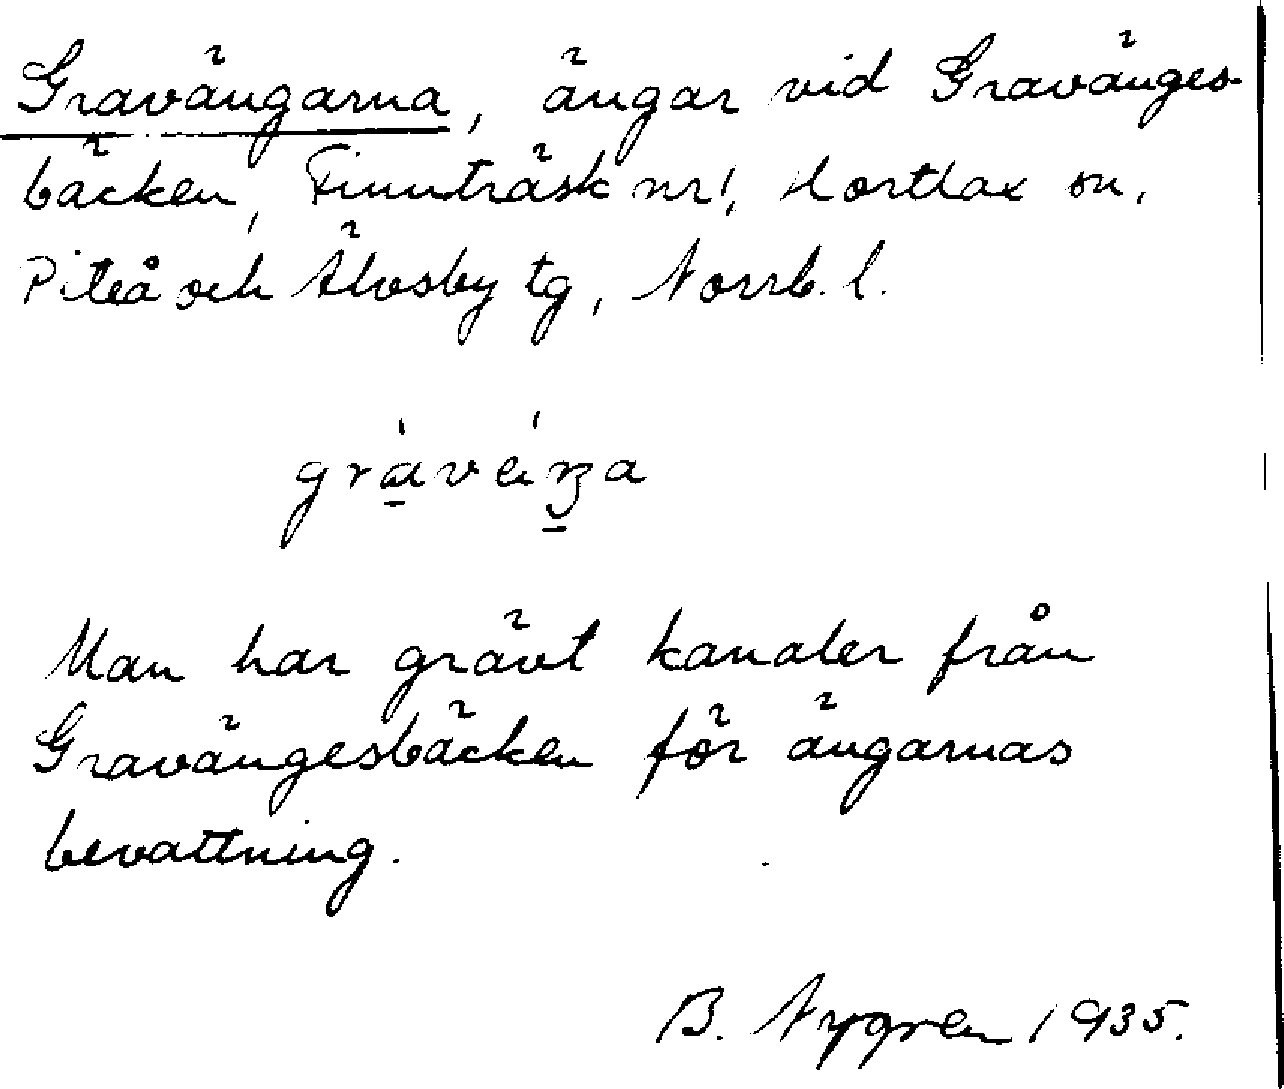 Gravängarna, ängar vid Gravänges-
bäcken, Finnträsk nr 1, Hortlax sn,
Piteå och Älvsby tg, Norrb. l.
Man har grävt kanaler från
Gravängesbäcken för ängarnas
bevattning.
B. Nygren 1935.